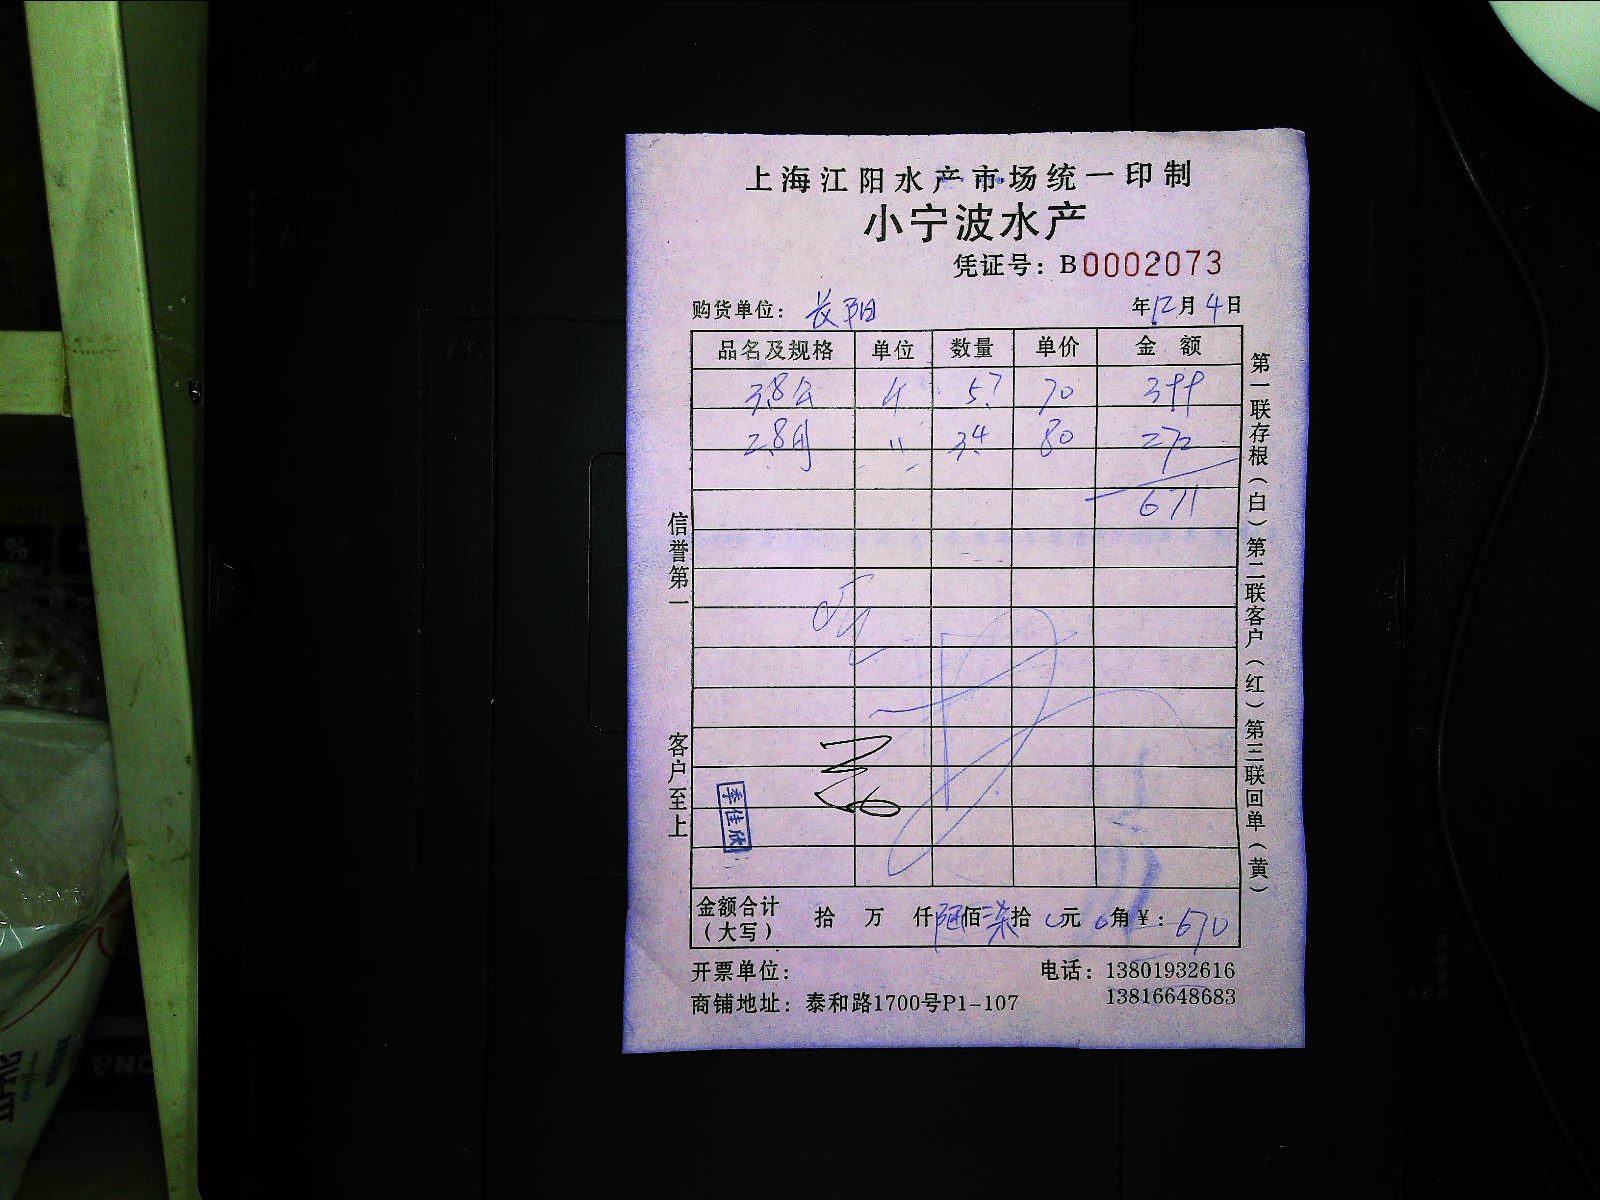 上海江阳水产市场统一印制
小宁波水产
凭证号：B0002073
购货单位：长阳 年12月4日
品名及规格 单位 数量 单价 金额
3.8公 斤 5.7 70 399
2.8母 〃 3.4 80 272
671
信誉第一
客户至上
季佳欣
第一联存根（白）第二联客户（红）第三联回单（黄）
金额合计（大写） 拾 万 仟 陆佰 柒拾 0元 0角 ¥：670
开票单位：
电话：13801932616
13816648683
商铺地址：泰和路1700号P1-107